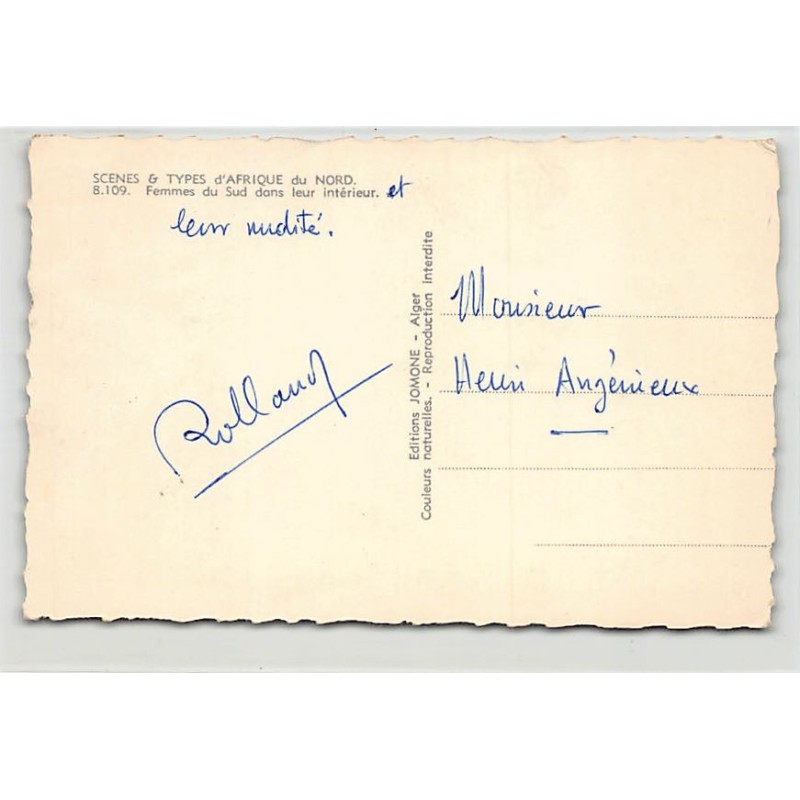 SCENES & TYPES d'AFRIQUE du NORD.
8.109. Femmes du Sud dans leur intérieur. et
leur nudité.
Rolland
Editions JOMONE - Alger
Couleurs naturelles. - Reproduction interdite
Monsieur
Henri Angénieux